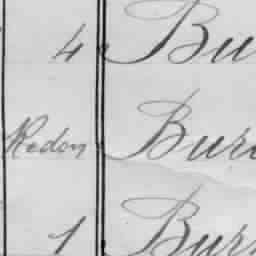 4 Bu
Redon Bur
1 Bur